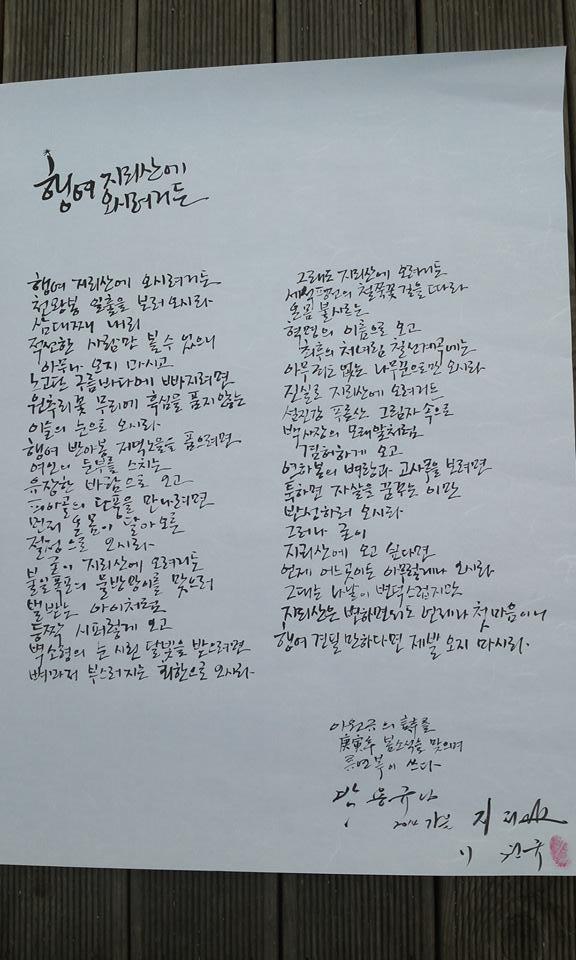 행여 지리산에
오시려거든
행여 지리산에 오시려거든
천왕봉 일출을 보러 오시라
삼대째 내리
적선한 사람만 볼 수 있으니
아무나 오지 마시고
노고단 구름바다에 빠지려면
원추리꽃 무리에 흑심을 품지 않는
이슬의 눈으로 오시라
행여 반야봉 저녁노을을 품으려면
여인의 둔부를 스치는
유장한 바람으로 오고
피아골의 단풍을 만나려면
먼저 온몸이 달아오른
절정으로 오시라
굳이 지리산에 오려거든
불일폭포의 물방망이를 맞으러
벌받는 아이처럼
등짝 시퍼렇게 오고
벽소령의 눈 시린 달빛을 받으려면
뼈마저 부스러지는 회한으로 오시라
그래도 지리산에 오려거든
세석평전의 철쭉꽃 길을 따라
온몸 불사르는
혁명의 이름으로 오고
최후의 처녀림 칠선계곡에는
아무 죄도 없는 나무꾼으로만 오시라
진실로 지리산에 오려거든
섬진강 푸른 산 그림자 속으로
백사장의 모래알처럼
겸허하게 오고
연하봉의 벼랑과 고사목을 보려면
툭하면 자살을 꿈꾸는 이만
반성하러 오시라
그러나 굳이
지리산에 오고 싶다면
언제 어느 곳이든 아무렇게나 오시라
그대는 나날이 변덕스럽지만
지리산은 변하면서도 언제나 첫 마음이니
행여 견딜만하다면 제발 오지 마시라.
이원규의 詩를
庚寅年 봄소식을 맞으며
쓰다
2014 가을 지리산
이 원규